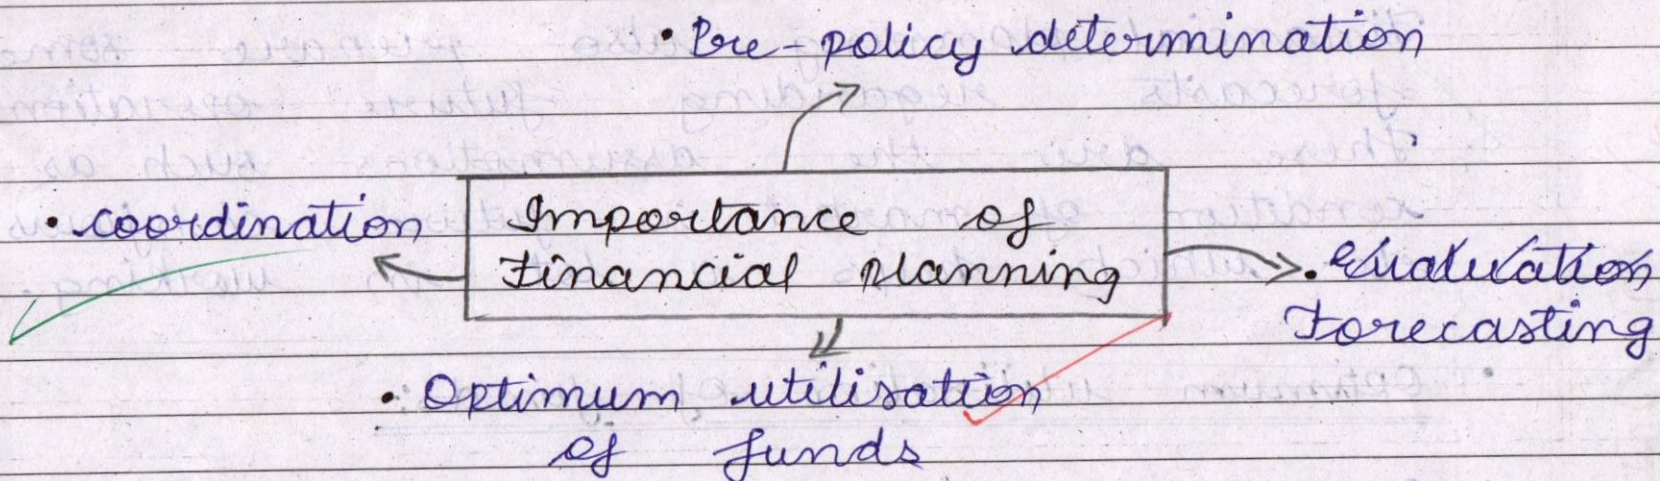 • Pre-policy determination
• coordination
Importance of
Financial planning
• Evaluation
Forecasting
• Optimum utilisation
of funds